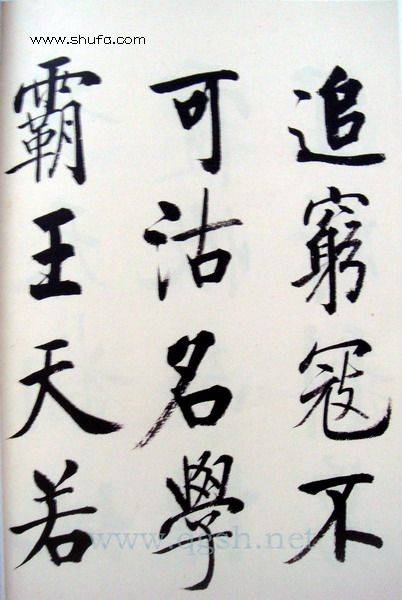 www.shufa.com
追窮寇不
可沽名學
霸王天若
www.qgsh.net